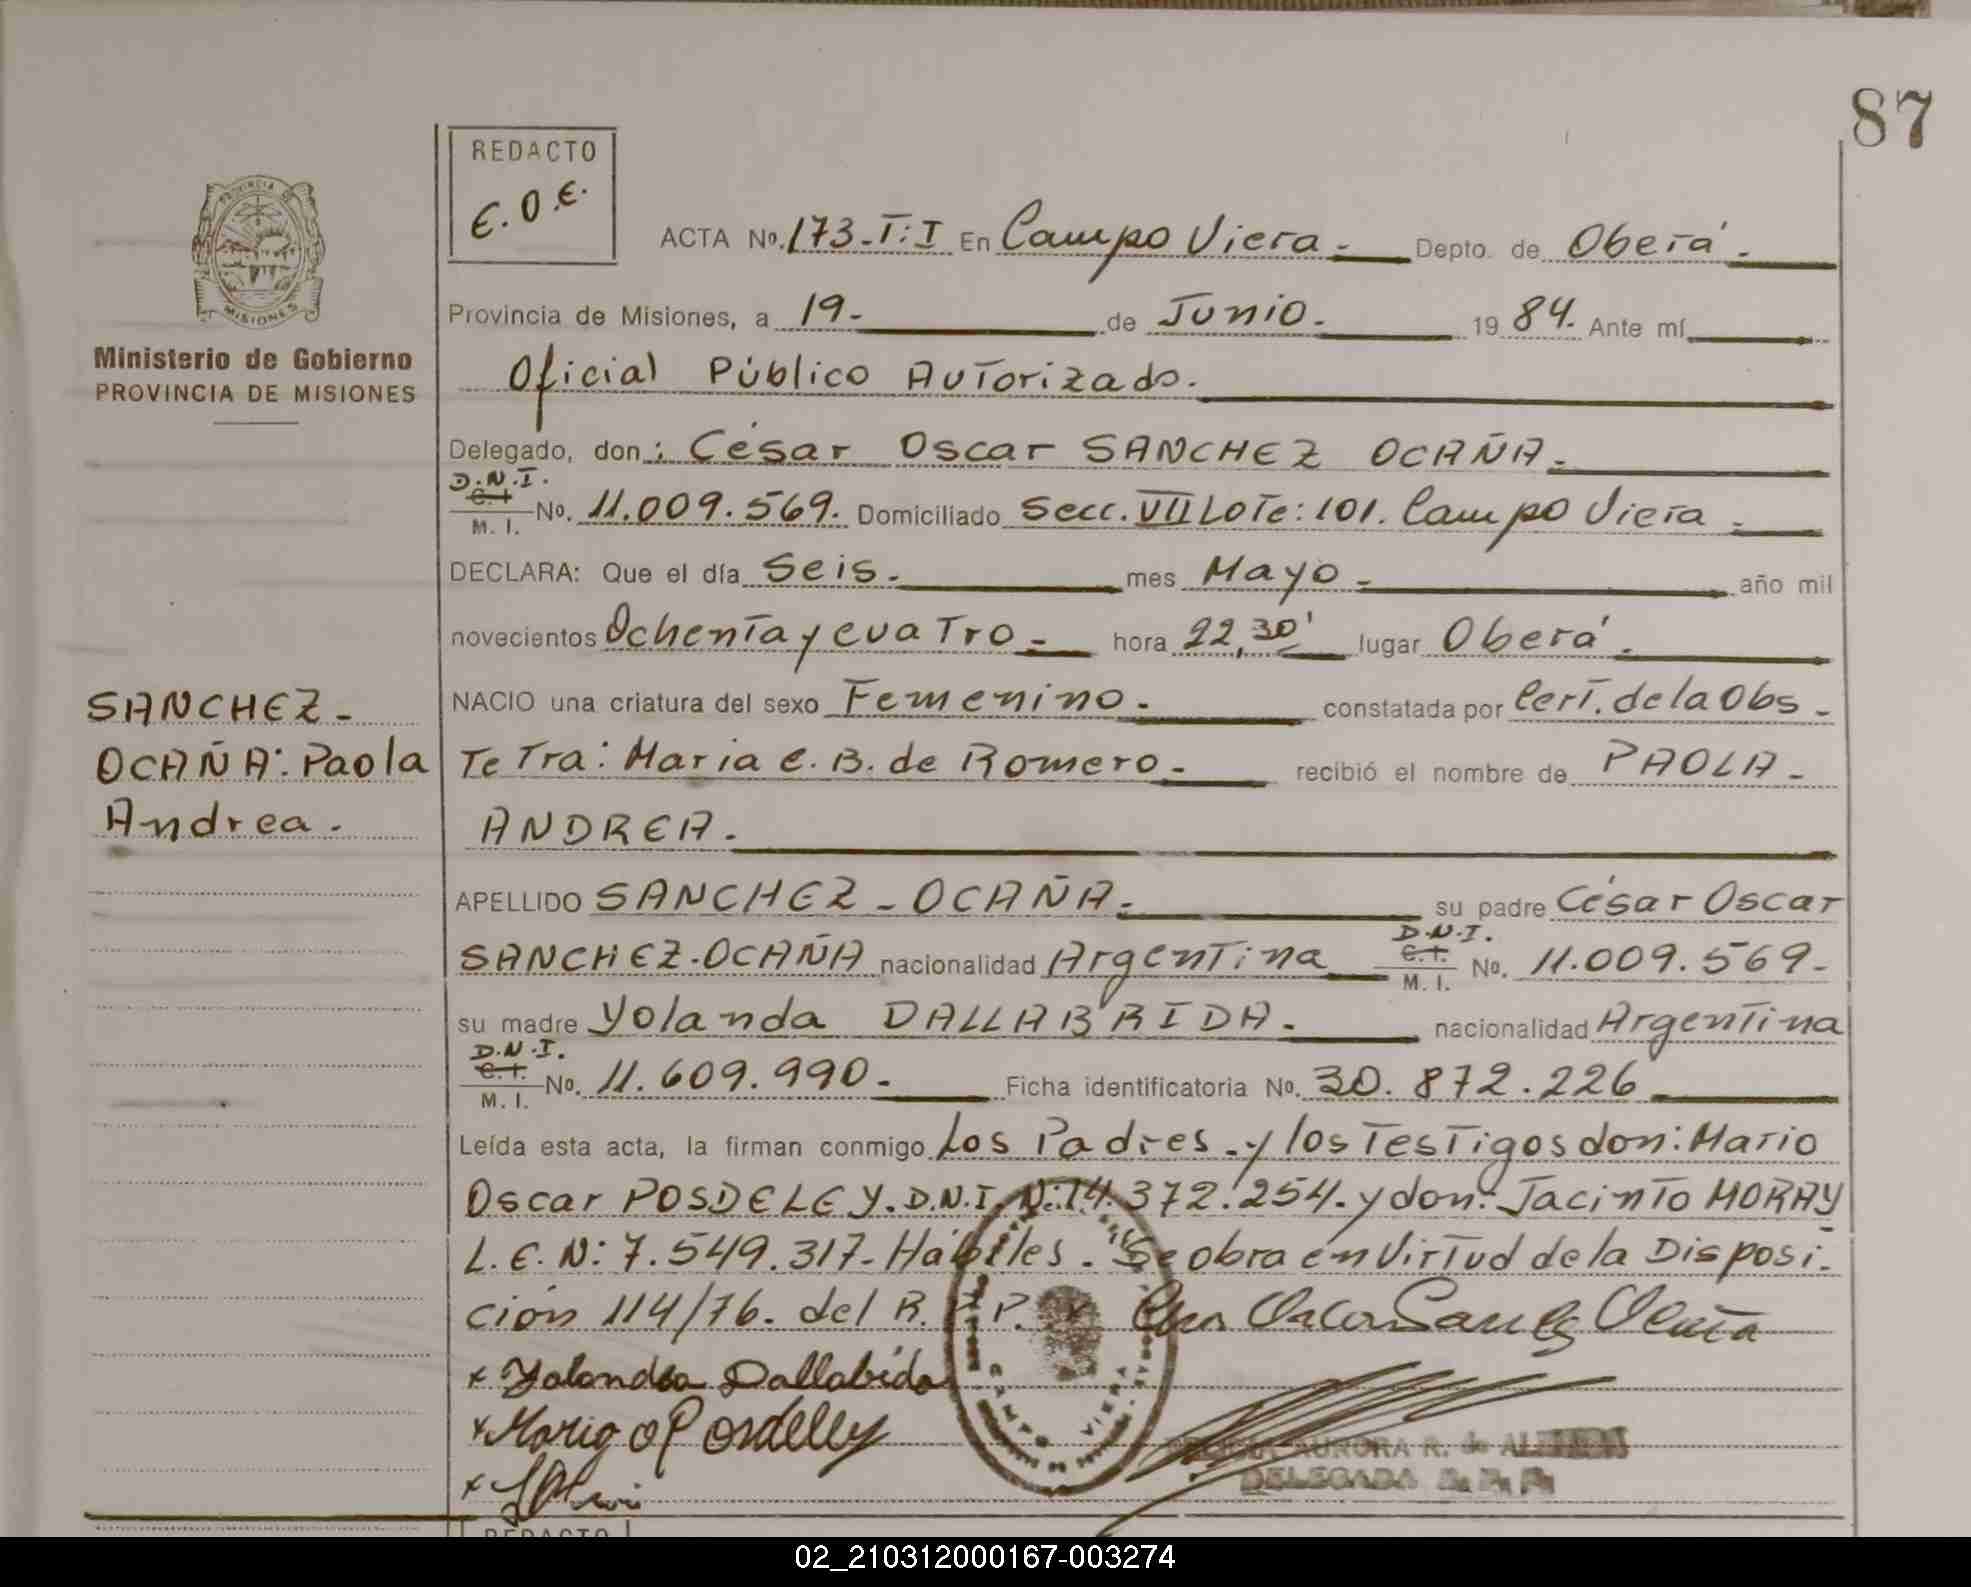 87
REDACTO
E.O.E.
PROVINCIA DE
MISIONES
Ministerio de Gobierno
PROVINCIA DE MISIONES
SANCHEZ-
OCAÑA: Paola
Andrea.
ACTA No. 173-T:I En Campo Viera.- Depto. de Oberá.-
Provincia de Misiones, a 19.- de Junio.- 1984. Ante mí
Oficial Público Autorizado.
Delegado, don: César Oscar SANCHEZ OCAÑA.-
D.N.I.
C.I.
M. I. No. 11.009.569. Domiciliado Secc. VII Lote: 101. Campo Viera.-
DECLARA: Que el día Seis.- mes Mayo.- año mil
novecientos Ochenta y cuatro.- hora 22,30' lugar Oberá.-
NACIO una criatura del sexo Femenino.- constatada por Cert. de la Obs-
tetra: Maria E. B. de Romero.- recibió el nombre de PAOLA-
ANDREA.
APELLIDO SANCHEZ-OCAÑA.- su padre César Oscar
SANCHEZ-OCAÑA nacionalidad Argentina D.N.I. C.I. M. I. No. 11.009.569-
su madre Yolanda DALLABRIDA.- nacionalidad Argentina
D.N.I.
C.I.
M. I. No. 11.609.990.- Ficha identificatoria No. 30.872.226
Leída esta acta, la firman conmigo Los Padres.y los Testigos don: Mario
Oscar POSDELEY. D.N.I. N:14.372.254.y don: Jacinto MORAY
L.E.N: 7.549.317-Hábiles. Se obra en Virtud de la Disposi-
ción 114/76. del R.P.P.
x Yolandaa Dallabida
x Mario O Posdelley
x
CAMPO VIERA
AURORA R. de
DELEGADA R. P. P.
REDACTO
02_210312000167-003274